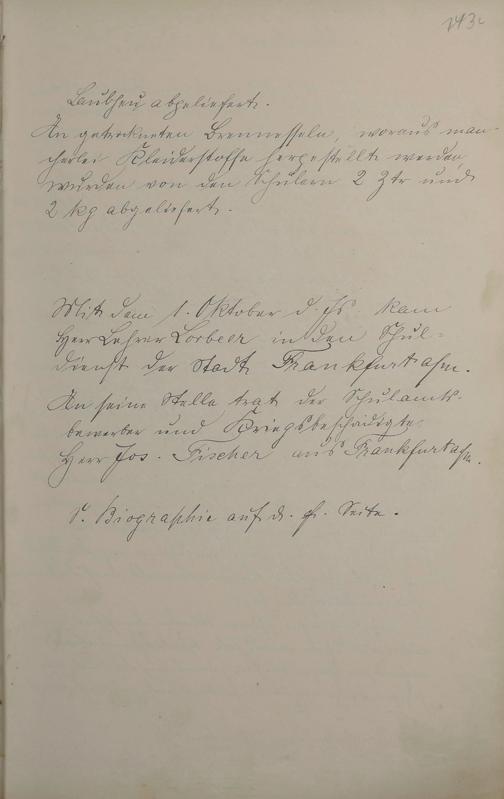 143
Laubheu abgeliefert.
An getrockneten Brennesseln, woraus man-
cherlei Kleiderstoffe hergestellt werden,
wurden von den Schülern 2 Ztr und
2 kg abgeliefert.
Mit dem 1. Oktober d. Js kam
Herr Lehrer Lorbeer in den Schul-
dienst der Stadt Frankfurt a/m.
An seine Stelle trat der Schulamts-
bewerber und Kriegsbeschädigte
Herr Jos. Fischer aus Frankfurt a/m.
S. Biographie auf d. Seite.